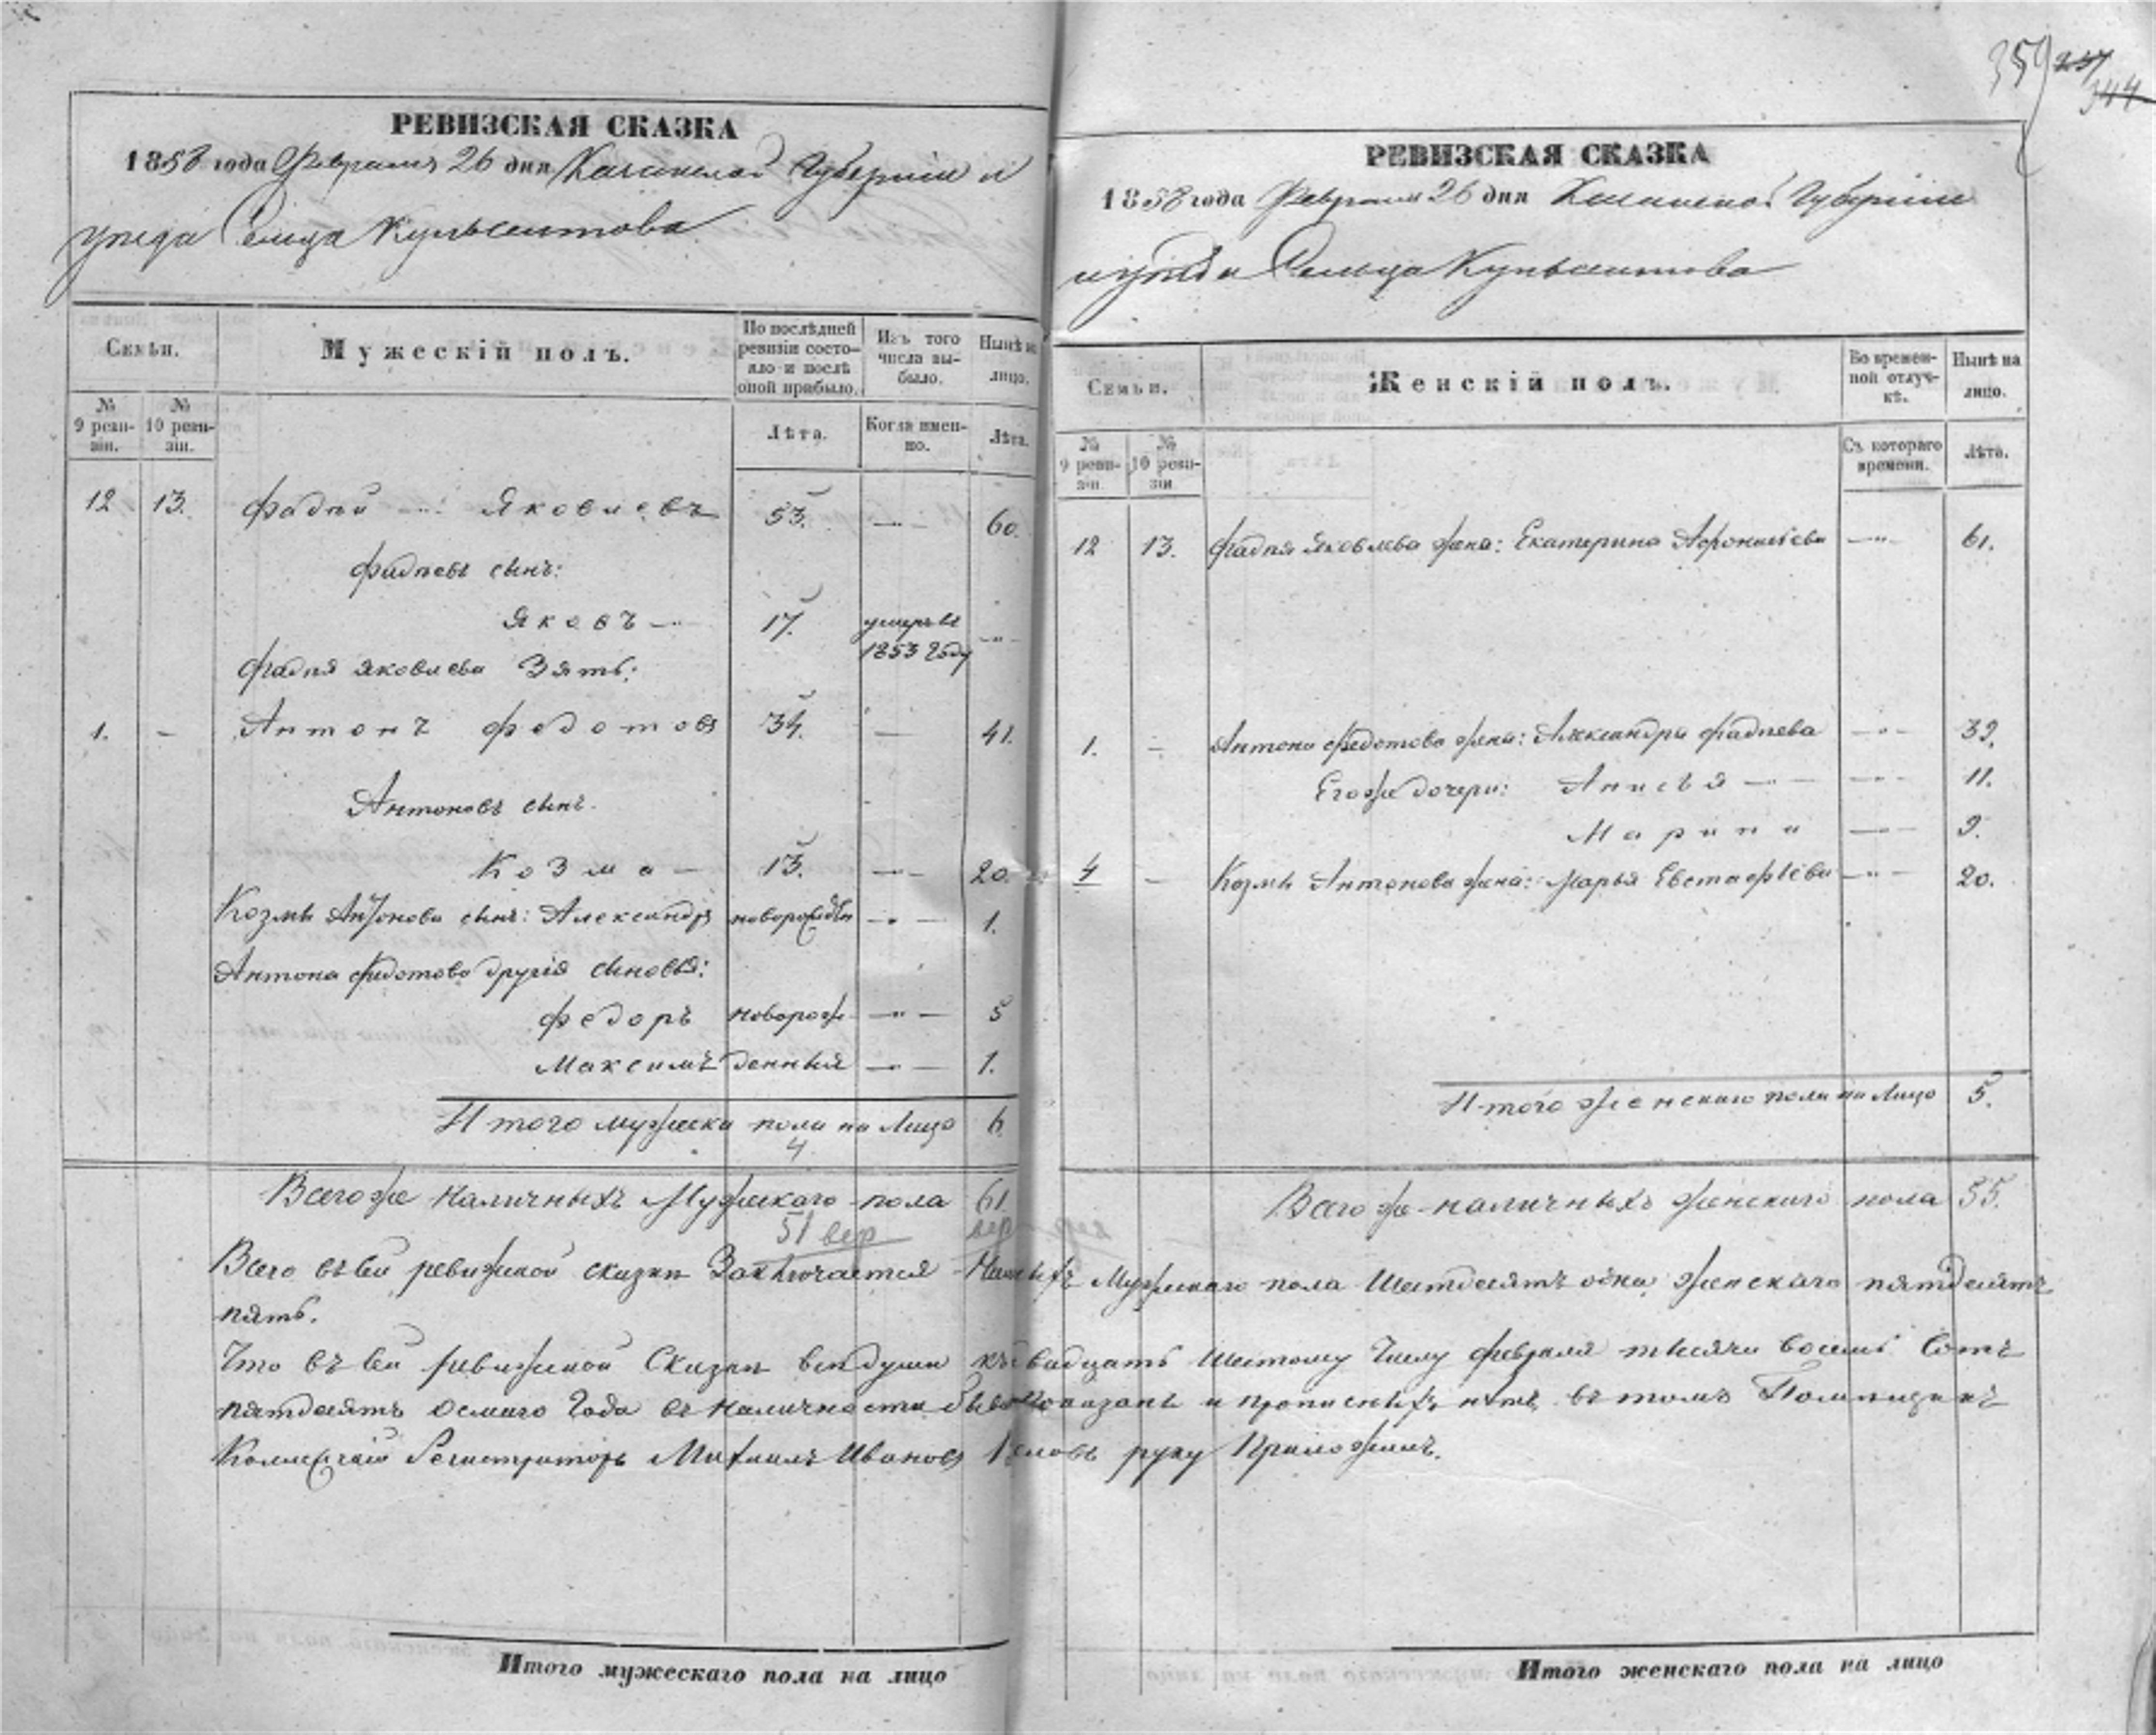 359 257
344
РЕВИЗСКАЯ СКАЗКА
1858 года Февраля 26 дня Казанской Губернии и
уезда Сельца Кульсеитова
Семьи.
Мужескій полъ.
По послѣдней ревизіи состояло и послѣ оной прибыло.
Изъ того числа выбыло.
Нынѣ на лицо.
№ 9 ревизіи.
№ 10 ревизіи.
Лѣта.
Когда именно.
Лѣта.
12 13. Фадѣй Яковлевъ 53. 60.
Фадѣевъ сынъ:
Яковъ 17. умеръ въ 1853 году
Фадѣя Яковлева Зять:
1. - Антонъ Федотовъ 34. — 41.
Антоновъ сынъ.
Козма — 13. 20.
Козмы Антонова сынъ: Александръ новорожден 1.
Антона Федотова другія сыновья:
Федоръ новорож 5
Максимъ денныя 1.
Итого мужеска пола на лицо 6
4
Всего же наличныхъ Мужескаго пола 61
51 вер вер
РЕВИЗСКАЯ СКАЗКА
1858 года Февраля 26 дня Казанской Губерніи
и уѣзда Сельца Кульсеитова
Семьи.
Женскій полъ.
Во временной отлучкѣ.
Нынѣ на лицо.
№ 9 ревизіи
№ 10 ревизіи
Съ котораго времени.
Лѣта.
12 13. Фадѣя Яковлева жена: Екатерина 61.
1. - Антона Федотова жена: Александра Фадѣева 39.
Его же дочери: Анисья 11.
Марина 9.
4 - Козмы Антонова жена: Марья Евстафіева 20.
Итого женскаго пола на лицо 5.
Всего же наличныхъ женскаго пола 55.
Всего въ сей ревижской сказки Заключается Мужескаго пола Шестдесятъ одна женскаго пятдесятъ
пять.
Что въ сей ревижской Сказки всѣ души къ двадцать шестому Числу февраля тысяча восемь Сотъ
пятдесятъ осмаго Года въ наличности показаны и прописныхъ нѣтъ въ томъ Помѣщикъ
Коллежскій Регистраторъ Михаилъ Ивановъ руку Приложилъ.
Итого мужескаго пола на лицо
Итого женскаго пола на лицо